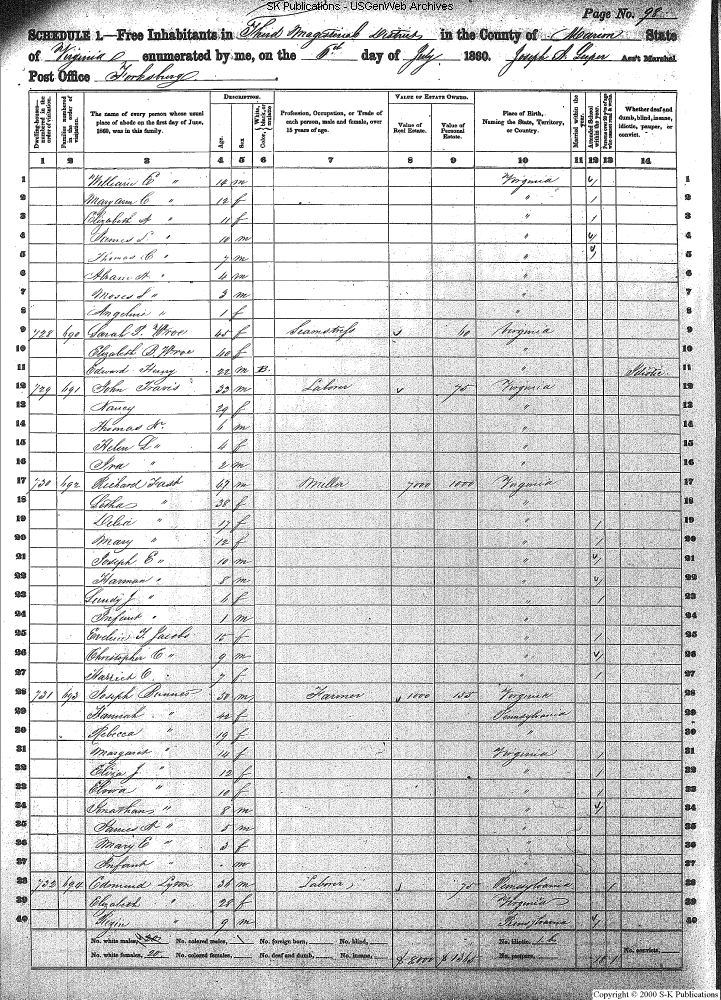 SK Publications - USGenWeb Archives
Page No. 98
SCHEDULE 1.—Free Inhabitants in Third Magisterial District in the County of Marion State
of Virginia enumerated by me, on the 6th day of July 1860. Joseph Ass't Marshal
Post Office
Dwelling-houses—numbered in the order of visitation.
Families numbered in the order of visitation.
The name of every person whose usual place of abode on the first day of June, 1860, was in this family.
DESCRIPTION.
Age.
Sex.
Color, White, black, or mulatto.
Profession, Occupation, or Trade of each person, male and female, over 15 years of age.
VALUE OF ESTATE OWNED.
Value of Real Estate.
Value of Personal Estate.
Place of Birth, Naming the State, Territory, or Country.
Married within the year.
Attended School within the year.
Whether deaf and dumb, blind, insane, idiotic, pauper, or convict.
1 2 3 4 5 6 7 8 9 10 11 12 13 14
1 William E " 14 m Virginia 1 1
2 Mary Ann C " 12 f " 1 2
3 Elizabeth A " 11 f " 1 3
4 James S " 10 m " 1 4
5 Thomas C " 7 m " 1 5
6 Abram A " 4 m " 6
7 Moses S " 3 m " 7
8 Angeline " 1 f " 8
9 728 690 Sarah P. Wroe 45 f Seamstress 60 Virginia 9
10 Elizabeth B. Wroe 40 f " 10
11 Edward Henry 22 m B. " Idiotic 11
12 729 691 John Travis 33 m Laborer 75 Virginia 12
13 Nancy 29 f " 13
14 Thomas " 6 m " 14
15 Helen L " 4 f " 15
16 Ira " 2 m " 16
17 730 692 Richard Fast 67 m Miller 7000 1000 Virginia 17
18 Letha " 38 f " 18
19 Delia " 17 f " 1 19
20 Mary " 12 f " 1 20
21 Joseph E " 10 m " 1 21
22 Harman " 8 m " 1 22
23 J " 6 f " 1 23
24 Infant " 1 m " 24
25 Eveline T. Jacobs 15 f " 1 25
26 Christopher C " 9 m " 1 26
27 Harriet C. " 7 f " 1 27
28 731 693 Joseph Runner 38 m Farmer 1000 155 Virginia 28
29 Hannah " 42 f Pennsylvania 29
30 Rebecca " 19 f " 30
31 Margaret " 14 f Virginia 1 31
32 Eliza J " 12 f " 1 32
33 " 10 f " 1 33
34 Jonathan " 8 m " 1 34
35 James A " 5 m " 35
36 Mary E " 3 f " 36
37 Infant " m " 37
38 732 694 Edmund Lyon 36 m Laborer 75 Pennsylvania 1 38
39 Elizabeth " 28 f Virginia 39
40 " 9 m Pennsylvania 1 40
No. white males, No. colored males, 1 No. foreign born, No. blind, No. idiotic, 1
No. white females, 20 No. colored females, No. deaf and dumb, No. insane, $ 8000 $ 1365 No. paupers, No. convicts,
Copyright © 2000 S-K Publications